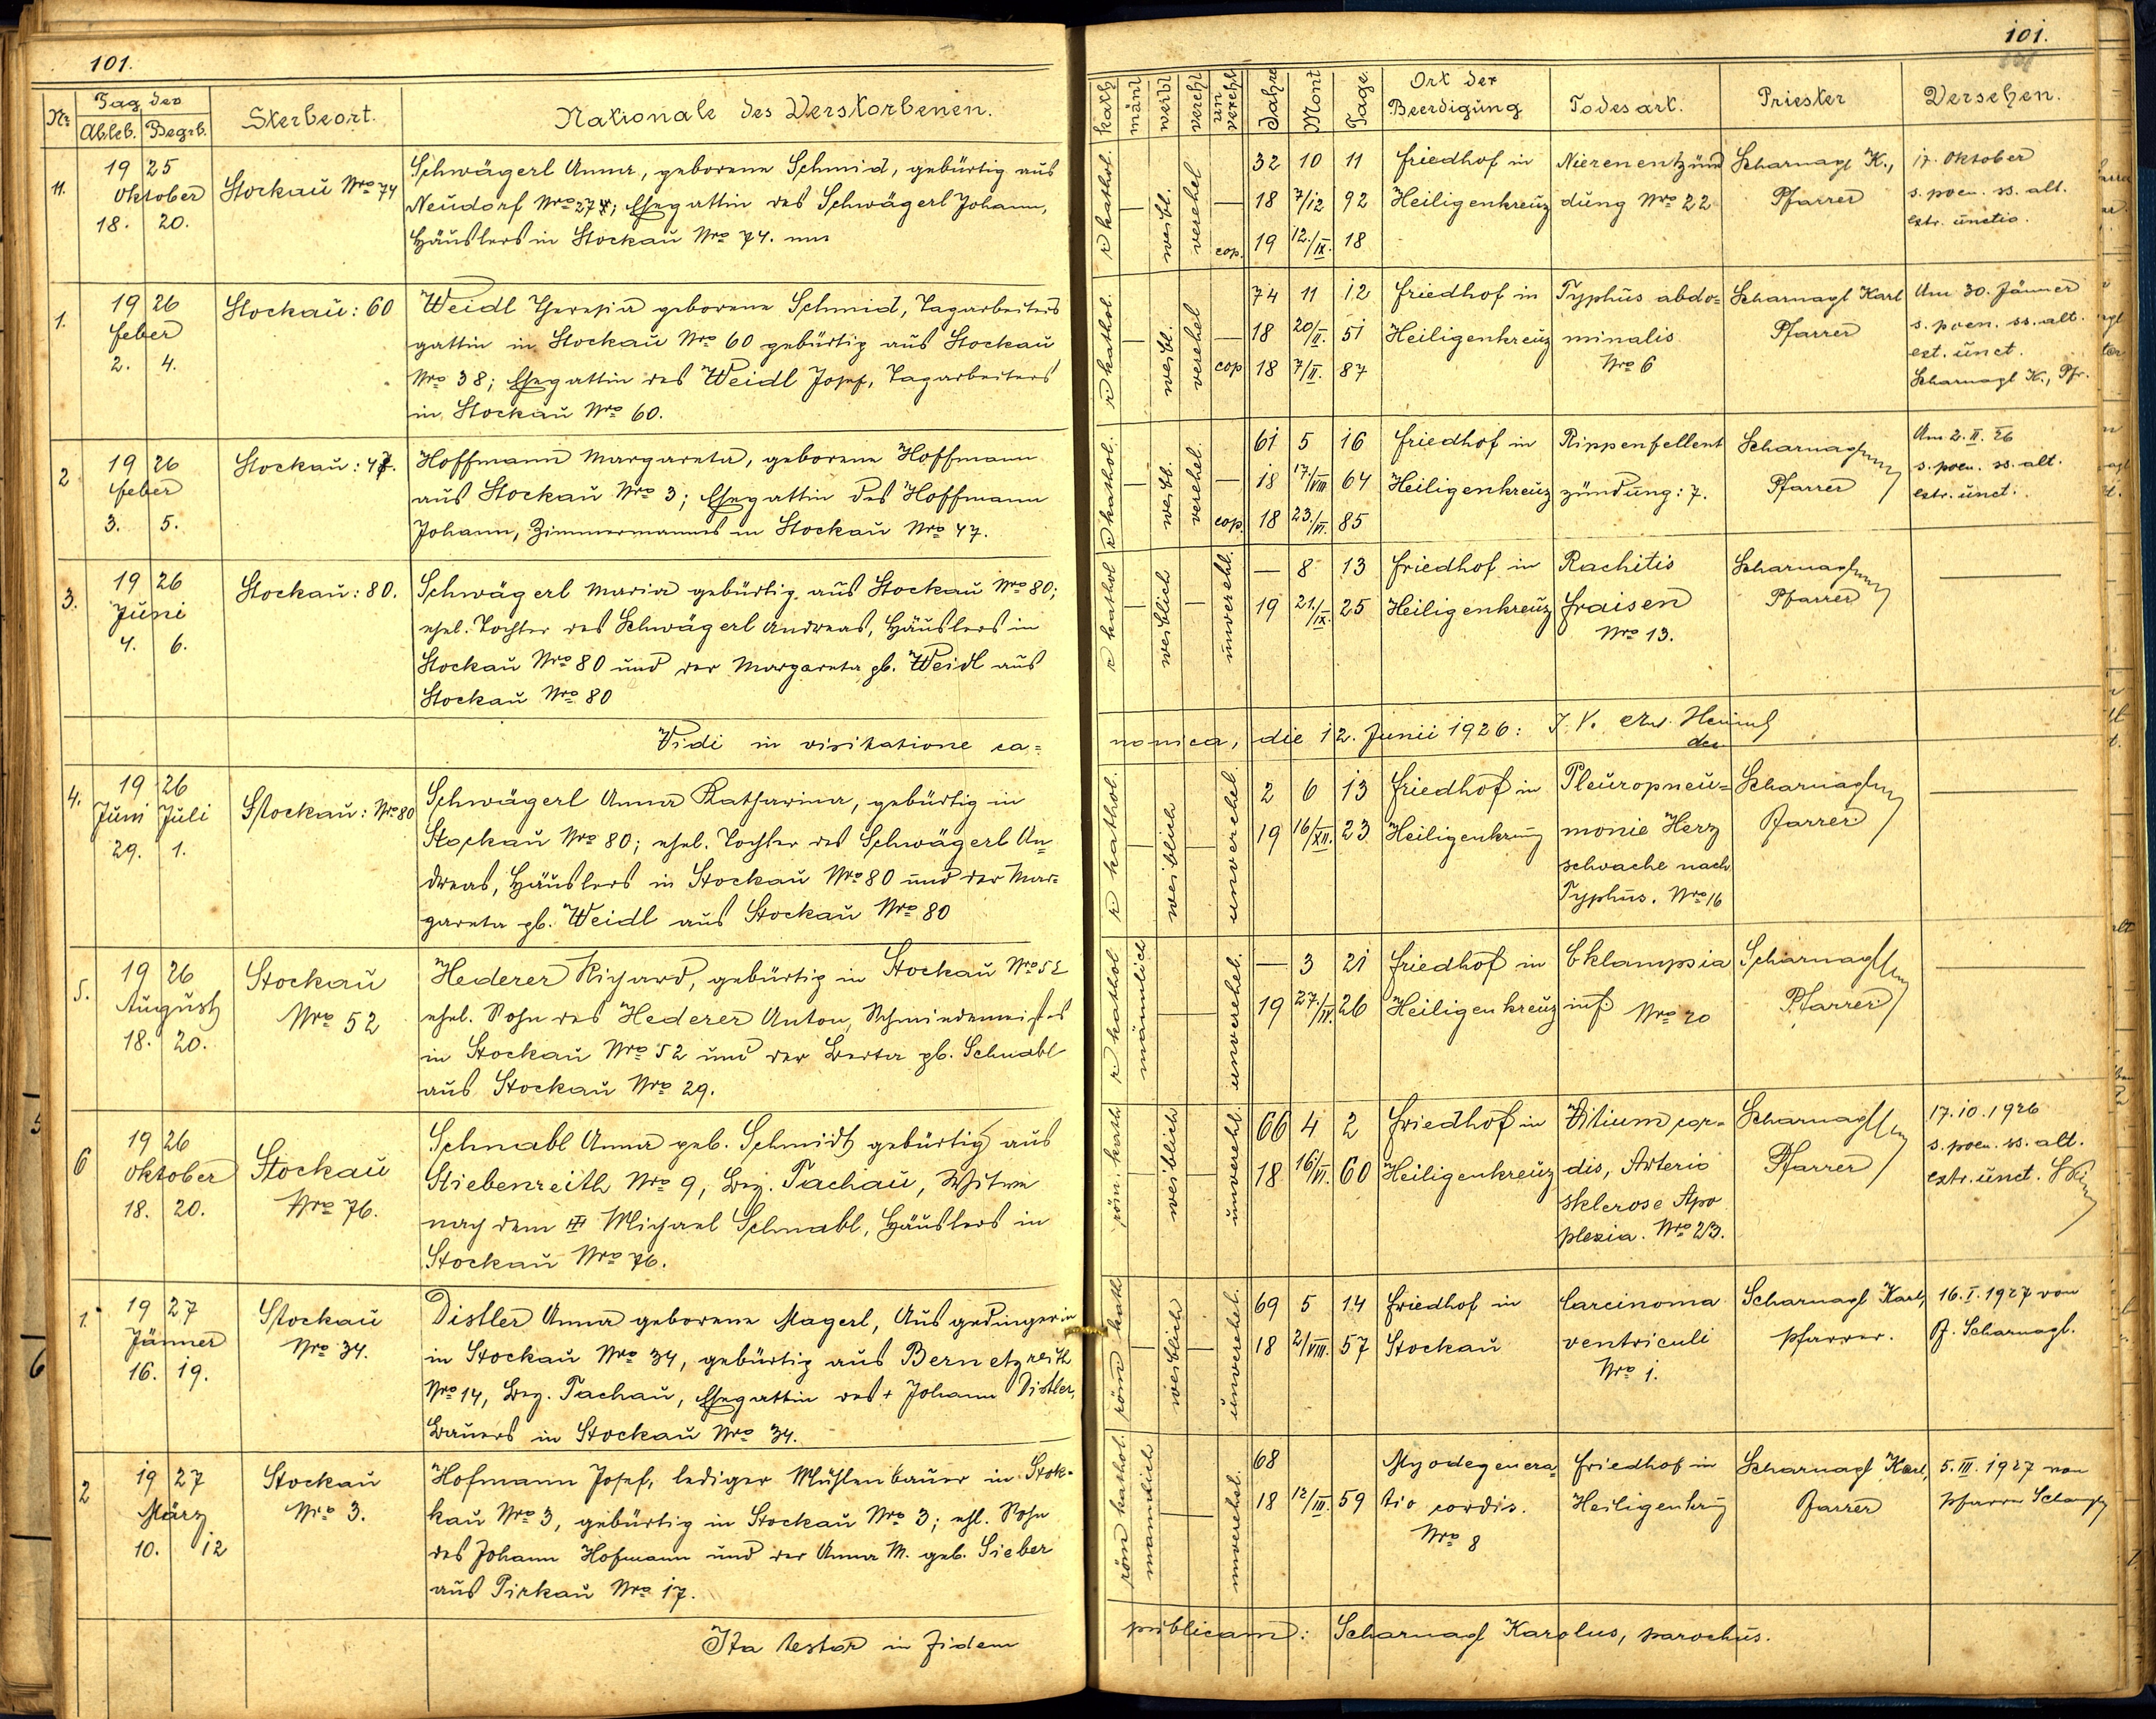 101.
Nr. Tag der Sterbeort. Nationale des Verstorbenen.
Ableb. Begrb.
11. 19 25 Oktober 18. 20. Stockau Nro 74
Schwägerl Anna, geborene Schmid, gebürtig aus
Neudorf Nro 274; Ehegattin des Schwägerl Johann,
Häuslers in Stockau Nro 74.
1. 19 26 Feber 2. 4. Stockau: 60
Weidl Theresia geborene Schmid, Tagarbeiters
gattin in Stockau Nro 60 gebürtig aus Stockau
Nro 38; Ehegattin des Weidl Josef, Tagarbeiters
in Stockau Nro 60.
2 19 26 Feber 3. 5. Stockau: 47.
Hoffmann Margareta, geborene Hoffmann
aus Stockau Nro 3; Ehegattin des Hoffmann
Johann, Zimmermannes in Stockau Nro 47.
3. 19 26 Juni 4. 6. Stockau: 80.
Schwägerl Maria gebürtig aus Stockau Nro 80;
ehel. Tochter des Schwägerl Andreas, Häuslers in
Stockau Nro 80 und der Margareta gb. Weidl aus
Stockau Nro 80
Vidi in visitatione ca=
4. 19 26 Juni Juli 29. 1. Stockau: Nro 80
Schwägerl Anna Katharina, gebürtig in
Stockau Nro 80; ehel. Tochter des Schwägerl An=
dreas, Häuslers in Stockau Nro 80 und der Mar=
gareta gb. Weidl aus Stockau Nro 80
5. 19 26 August 18. 20. Stockau Nro 52
Hederer Richard, gebürtig in Stockau Nro 52
ehel. Sohn des Hederer Anton, Schmiedemeisters
in Stockau Nro 52 und der Berta gb. Schnabl
aus Stockau Nro 29.
6 19 26 Oktober 18. 20. Stockau Nro 76.
Schnabl Anna geb. Schmidt gebürtig aus
Stiebenreith Nro 9, Bez. Tachau, Witwe
nach dem Michael Schnabl, Häuslers in
Stockau Nro 76.
1. 19 27 Jänner 16. 19. Stockau Nro 34.
Distler Anna geborene Magerl, Ausgedingerin
in Stockau Nro 34, gebürtig aus Bernetzreith
Nro 14, Bez. Tachau, Ehegattin des + Johann Distler,
Bauers in Stockau Nro 34.
2 19 27 März 10. 12 Stockau Nro 3.
Hofmann Josef, lediger Mühlenbauer in Stok-
kau Nro 3, gebürtig in Stockau Nro 3; ehl. Sohn
des Johann Hofmann und der Anna M. geb. Sieber
aus Pirkau Nro 17.
Ita testor in fidem
101.
kath männl weibl verehl un verehl Jahre Mont Tage. Ort der Beerdigung Todesart. Priester Versehen.
r kathol. weibl. verehel cop.
32 10 11 Friedhof in Nierenentzünd Scharnagl K., 17. Oktober
18 7/12 92 Heiligenkreuz dung Nro 22 Pfarrer s. poen. ss. alt.
19 12./IX. 18 extr. unctio.
r kathol. weibl. verehel cop
74 11 12 Friedhof in Typhus abdo= Scharnagl Karl Am 30. Jänner
18 20/II. 51 Heiligenkreuz minalis Pfarrer s. poen. ss. alt.
18 7/II. 87 Nro 6 ext. unct.
Scharnagl K., Pfr.
r kathol. weibl. verehel. cop.
61 5 16 Friedhof in Rippenfellent Scharnagl Am 2. II. 26
18 17./VIII 64 Heiligenkreuz zündung: 7. Pfarrer s. poen. ss. alt.
18 23./VI. 85 extr. unct.
r kathol weiblich unverehl.
— 8 13 Friedhof in Rachitis Scharnagl
19 21./IX. 25 Heiligenkreuz Fraisen Pfarrer
Nro 13.
nonica, die 12. Junii 1926:
r kathol. weiblich unverehel.
2 6 13 Friedhof in Pleuropneu= Scharnagl
19 16/XII. 23 Heiligenkreuz monie Herz Pfarrer
schvache nach
Typhus. Nro 16
r kathol männlich unverehel.
— 3 21 Friedhof in Eklampsia Scharnagl
19 27./IV. 26 Heiligenkreuz inf. Nro 20 Pfarrer
röm. kath weiblich unverehl.
66 4 2 Friedhof in Vitium cor= Scharnagl 17.10.1926
18 16/VI. 60 Heiligenkreuz dis, Arterio Pfarrer s. poen. ss. alt.
sklerose Apo extr. unct.
plexia. Nro 23.
röm kath weiblich unverehel.
69 5 14 Friedhof in Carcinoma Scharnagl Karl, 16. I. 1927 von
18 2/VIII. 57 Stockau ventriculi Pfarrer. Pf. Scharnagl.
Nro 1.
röm kathol. mannlich unverehel.
68 Myodegenera= Friedhof in Scharnagl Karl, 5. III. 1927 von
18 12/III. 59 tio cordis. Heiligenkrz Pfarrer Pfarrer
Nro 8
publicam: Scharnagl Karolus, parochus.